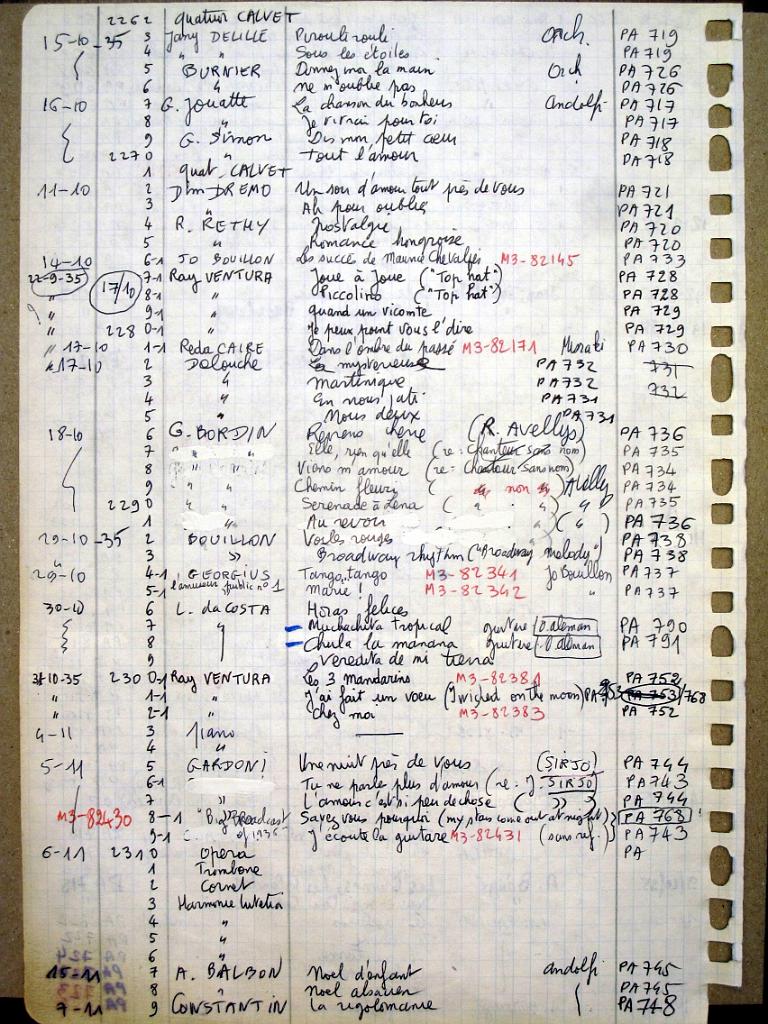 2262 quatuor CALVET
15-10-35 3 Jany DELILLE Pirouli rouli Orch. PA 719
4 " " Sous les étoiles PA 719
5 BURNIER Donnez moi la main Orch PA 726
6 " ne m'oublie pas PA 726
16-10 7 G. Jouatte La chanson du bonheur andolfi PA 717
8 " Je vivrai pour toi PA 717
9 G. Simon Dis mon petit cœur PA 718
2270 " tout l'amour PA 718
1 quat. CALVET
11-10 2 Dim DREMO Un soir d'amour tout près de vous PA 721
3 " Ah pour oublier PA 721
4 R. RETHY nostalgie PA 720
5 " Romance hongroise PA 720
14-10 6-1 JO BOUILLON Les succès de Maurice Chevalier M3-82145 PA 733
22-9-35 7-1 Ray VENTURA Joue à Joue ("Top hat") PA 728
" 17/10 8-1 " Piccolino ("Top hat") PA 728
9-1 " quand un vicomte PA 729
" 2280-1 " Je peux point vous l'dire PA 729
" 17-10 1-1 Reda CAIRE Dans l'ombre du passé M3-82171 Muraki PA 730
17-10 2 Delouche La mysterieuse PA 732 731
3 " Martinique PA 732 732
4 " En nous PA 731
5 " Nous deux PA 731
18-10 6 G. BORDIN Reviens cherie (R. AVELLYS) PA 736
7 " " Elle, rien qu'elle (re: Chanteur sans nom) PA 735
8 " Viens m'amour (re: Chanteur sans nom) PA 734
9 " " Chemin fleuri ( " non " ) Avellys PA 734
2290 " " Serenade à Lena ( " " ) " PA 735
1 " Au revoir " ) ( " ) PA 736
29-10-35 2 BOUILLON Voiles rouges PA 738
" 3 " Broadway rhythm ("Broadway melody") PA 738
29-10 4-1 GEORGIUS Tango, tango M3-82341 Jo Bouillon PA 737
5-1 l'amuseur public n°1 Marie! M3-82342 " PA 737
30-10 6 L. da COSTA Horas felices
7 " Muchachita tropical guitare O. aleman PA 790
8 Chula la manana guitare O. aleman PA 791
9 Veredita de mi tierra
31-10-35 2300-1 Ray VENTURA Les 3 mandarins M3-82381 PA 752
" 1-1 " J'ai fait un voeu (I wished on the moon) PA 753 PA 753/768
" 2-1 " Chez moi M3-82383 PA 752
4-11 3 piano
4 "
5-11 5 GARDONI Une nuit près de vous (SIRJO) PA 744
6-1 Tu ne parle plus d'amour (re. J. SIRJO) PA 743
7 " L'amour c'est si peu de chose ( " ) PA 744
M3-82430 8-1 "Big Broadcast Savez vous pourquoi (my stars come out at night) PA 768
9-1 of 1936" J'écoute la guitare M3-82431 (sans ref.) PA 743
6-11 2310 opera PA
1 Trombone
2 Cornet
3 Harmonie lutetia
4 "
5 "
6 "
15-11 7 A. BALBON Noel d'enfant andolfi PA 745
8 " noel alsacien PA 745
7-11 9 CONSTANTIN la rigolomanie PA 748